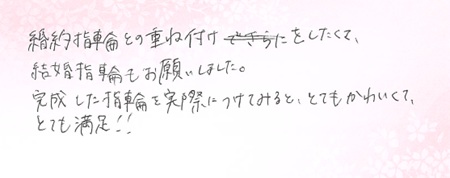 婚約指輪との重ね付けをしたくて、
結婚指輪もお願いしました。
完成した指輪を実際につけてみると、とてもかわいくて、
とても満足!!